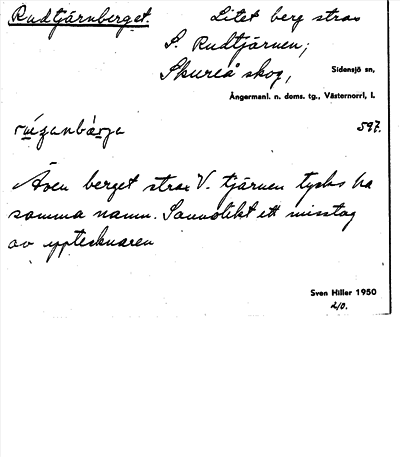 Rudtjärnberget.
Litet berg strax
S. Rudtjärnen;
Skureå skog,
Sidensjö sn,
Ångermanl. n. doms. tg., Västernorrl. l.
597.
Även berget strax V. tjärnen tycks ha
samma namn. Sannolikt ett misstag
av upptecknaren
Sven Hiller 1950
210.